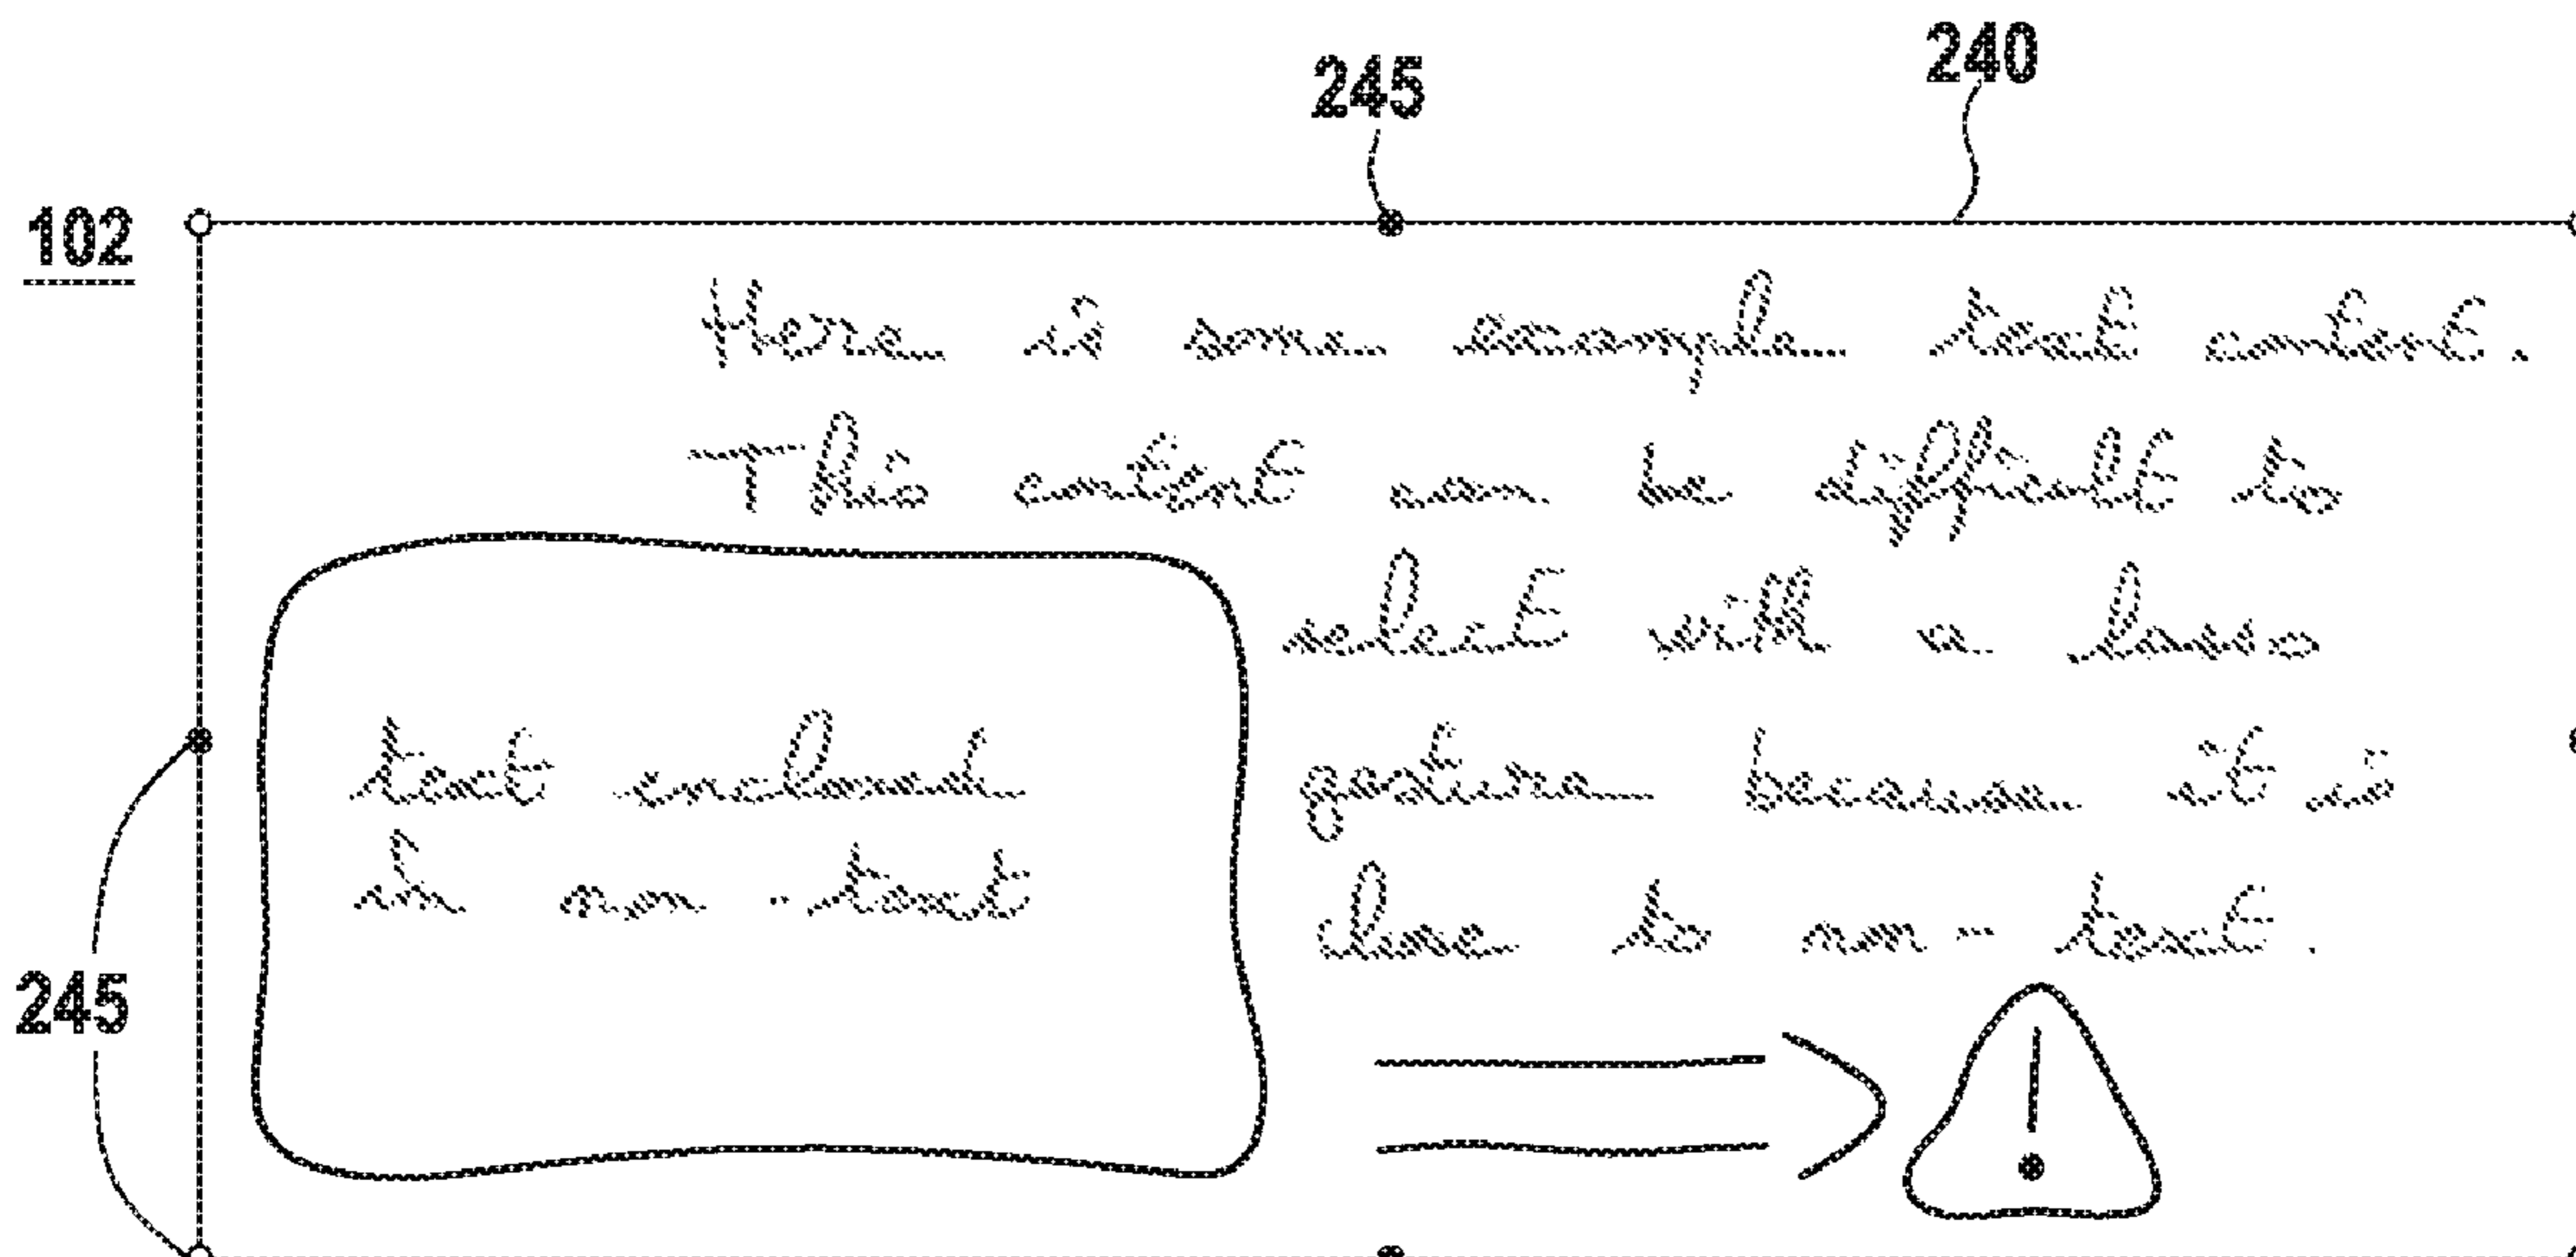 245
240
102
Here is some example text content.
This content can be difficult to
select with a lasso
gesture because it is
close to non-text.
text enclosed
in non-text
!
245